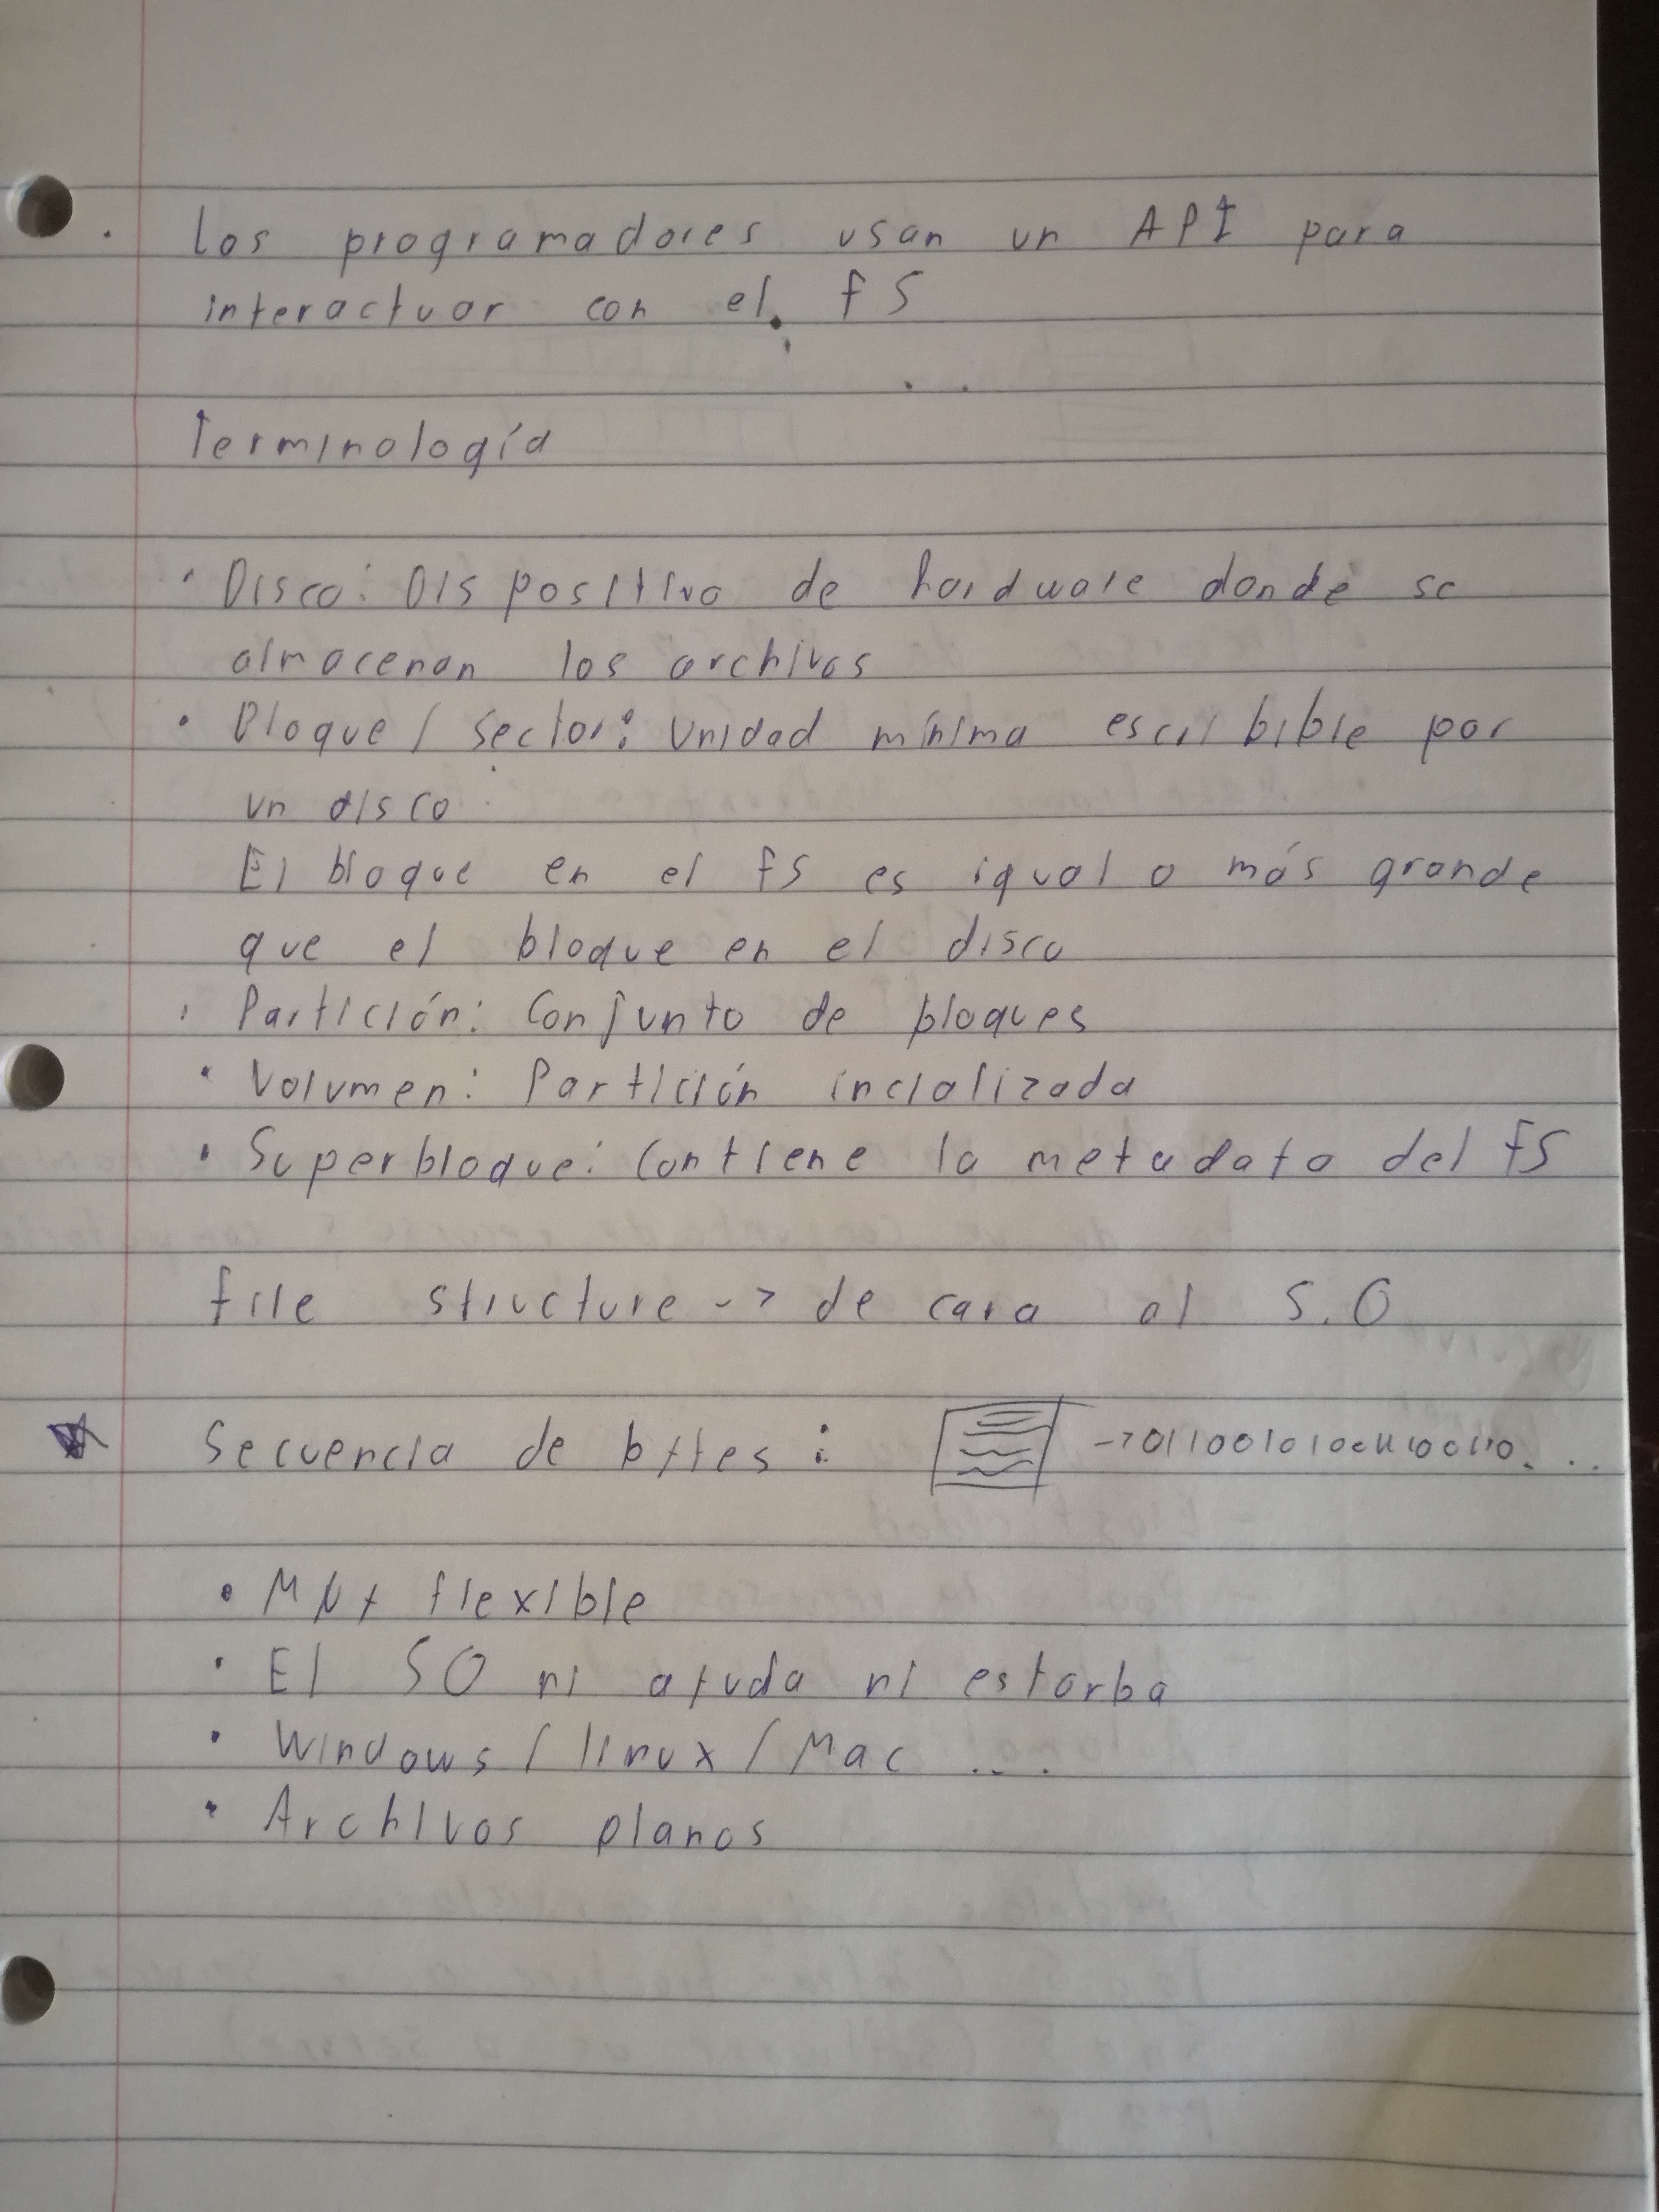 · Los programadores usan un API para
interactuar con el FS
Terminología
· Disco: Dispositivo de hardware donde se
almacenan los archivos
· Bloque / Sector: Unidad mínima escribible por
un disco
El bloque en el FS es igual o más grande
que el bloque en el disco
· Partición: Conjunto de bloques
· Volumen: Partición incializada
· Superbloque: Contiene la metadata del FS
File structure -> de cara al S.O
Secuencia de bytes:
· Muy flexible
· El SO ni ayuda ni estorba
· Windows / linux / Mac ...
· Archivos planos